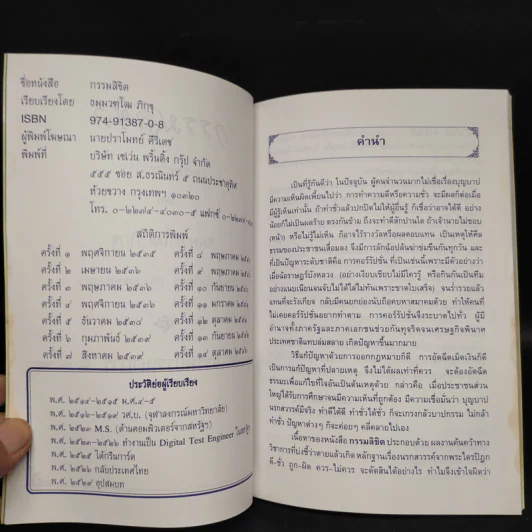 ชื่อหนังสือ กรรมลิขิต
เรียบเรียงโดย ธมฺมวฑฺโฒ ภิกฺขุ
ISBN 974-91387-0-8
ผู้พิมพ์โฆษณา นายปราโมทย์ ศิริเดช
พิมพ์ที่ บริษัท เซเว่น พริ้นติ้ง กรุ๊ป จำกัด
๕๕๕ ซอย ส.ธรณินทร์ ๕ ถนนประชาอุทิศ
ห้วยขวาง กรุงเทพฯ ๑๐๓๒๐
โทร. ๐-๒๒๗๔-๔๐๓๐-๕ แฟกซ์
สถิติการพิมพ์
ครั้งที่ ๑ พฤศจิกายน ๒๕๓๕ ครั้งที่ ๘ พฤษภาคม
ครั้งที่ ๒ เมษายน ๒๕๓๖ ครั้งที่ ๙ พฤษภาคม
ครั้งที่ ๓ พฤษภาคม ๒๕๓๖ ครั้งที่ ๑๐ กันยายน
ครั้งที่ ๔ พฤศจิกายน ๒๕๓๖ ครั้งที่ ๑๑ มกราคม
ครั้งที่ ๕ ธันวาคม ๒๕๓๗ ครั้งที่ ๑๒ ตุลาคม
ครั้งที่ ๖ กุมภาพันธ์ ๒๕๓๙ ครั้งที่ ๑๓ กันยายน
ครั้งที่ ๗ สิงหาคม ๒๕๓๙ ครั้งที่ ๑๔ ตุลาคม
ประวัติย่อผู้เรียบเรียง
พ.ศ. ๒๕๑๔-๒๕๑๕ ม.ศ.๔-๕
พ.ศ. ๒๕๑๖-๒๕๑๙ วศ.บ. (จุฬาลงกรณ์มหาวิทยาลัย)
พ.ศ. ๒๕๒๓ M.S. (ด้านคอมพิวเตอร์จากสหรัฐฯ)
พ.ศ. ๒๕๒๓-๒๕๒๖ ทำงานเป็น Digital Test Engineer
พ.ศ. ๒๕๒๕ ได้กรีนการ์ด
พ.ศ. ๒๕๒๖ กลับประเทศไทย
พ.ศ. ๒๕๒๙ อุปสมบท
คำนำ
เป็นที่รู้กันดีว่า ในปัจจุบัน ผู้คนจำนวนมากไม่เชื่อเรื่องบุญบาป
มีความเห็นผิดเพี้ยนไปว่า การทำความดีหรือความชั่ว จะมีผลก็ต่อเมื่อ
มีผู้รู้เห็นเท่านั้น ถ้าทำชั่วแล้วปกปิดไม่ให้ผู้อื่นรู้ ก็เชื่อว่าเอาตัวได้ดี อย่าง
น้อยก็ไม่เป็นผลร้าย ตรงกันข้าม ถึงจะทำดีสักปานใด ถ้าเจ้านายไม่ชอบ
(หน้า) หรือไม่รู้ไม่เห็น ก็อาจไร้รางวัลหรือผลตอบแทน เป็นเหตุให้ศีล
ธรรมของประชาชนเสื่อมลง จึงมีการลักฉ้อปล้นฆ่าข่มขืนกันทุกวัน และ
ที่เป็นปัญหาระดับชาติคือ การคอร์รัปชั่น ที่เป็นเช่นนี้เพราะมีตัวอย่างว่า
เมื่อฉ้อราษฎร์บังหลวง (อย่างเงียบเชียบไม่มีใครรู้ หรือกินกันเป็นทีม
อย่างแนบเนียนจนจับไม่ได้ไล่ไม่ทันเพราะขาดใบเสร็จ) จนร่ำรวยแล้ว
แทนที่จะรังเกียจ กลับมีคนยกย่องนับถือคบหาสมาคมด้วย ทำให้คนที่
ไม่เคยคอร์รัปชั่นอยากทำตาม การคอร์รัปชั่นจึงระบาดไปทั่ว ผู้มี
อำนาจทั้งภาครัฐและภาคเอกชนช่วยกันทุจริตจนเศรษฐกิจพินาศ
ประเทศชาติแทบล่มสลาย เกิดปัญหาขึ้นมากมาย
วิธีแก้ปัญหาด้วยการออกกฎหมายก็ดี การอัดฉีดเม็ดเงินก็ดี
เป็นการแก้ปัญหาที่ปลายเหตุ จึงไม่ได้ผลเท่าที่ควร จะต้องอัดฉีด
ธรรมะเพื่อแก้ไขที่ใจอันเป็นต้นเหตุด้วย กล่าวคือ เมื่อประชาชนส่วน
ใหญ่ได้รับการศึกษาจนมีความเห็นที่ถูกต้อง มีความเชื่อมั่นว่า บุญบาป
นรกสวรรค์มีจริง ทำดีได้ดี ทำชั่วได้ชั่ว ก็จะเกรงกลัวบาปกรรม ไม่กล้า
ทำชั่ว ปัญหาต่างๆ ก็จะค่อยๆ คลี่คลายไปเอง
เนื้อหาของหนังสือ กรรมลิขิต ประกอบด้วย ผลงานค้นคว้าทาง
วิชาการที่บ่งชี้ว่าตายแล้วเกิด หลักฐานเรื่องนรกสวรรค์จากพระไตรปิฎก
ดี-ชั่ว ถูก-ผิด ควร-ไม่ควร จะตัดสินได้อย่างไร ทำไมจึงเข้าใจผิดว่า